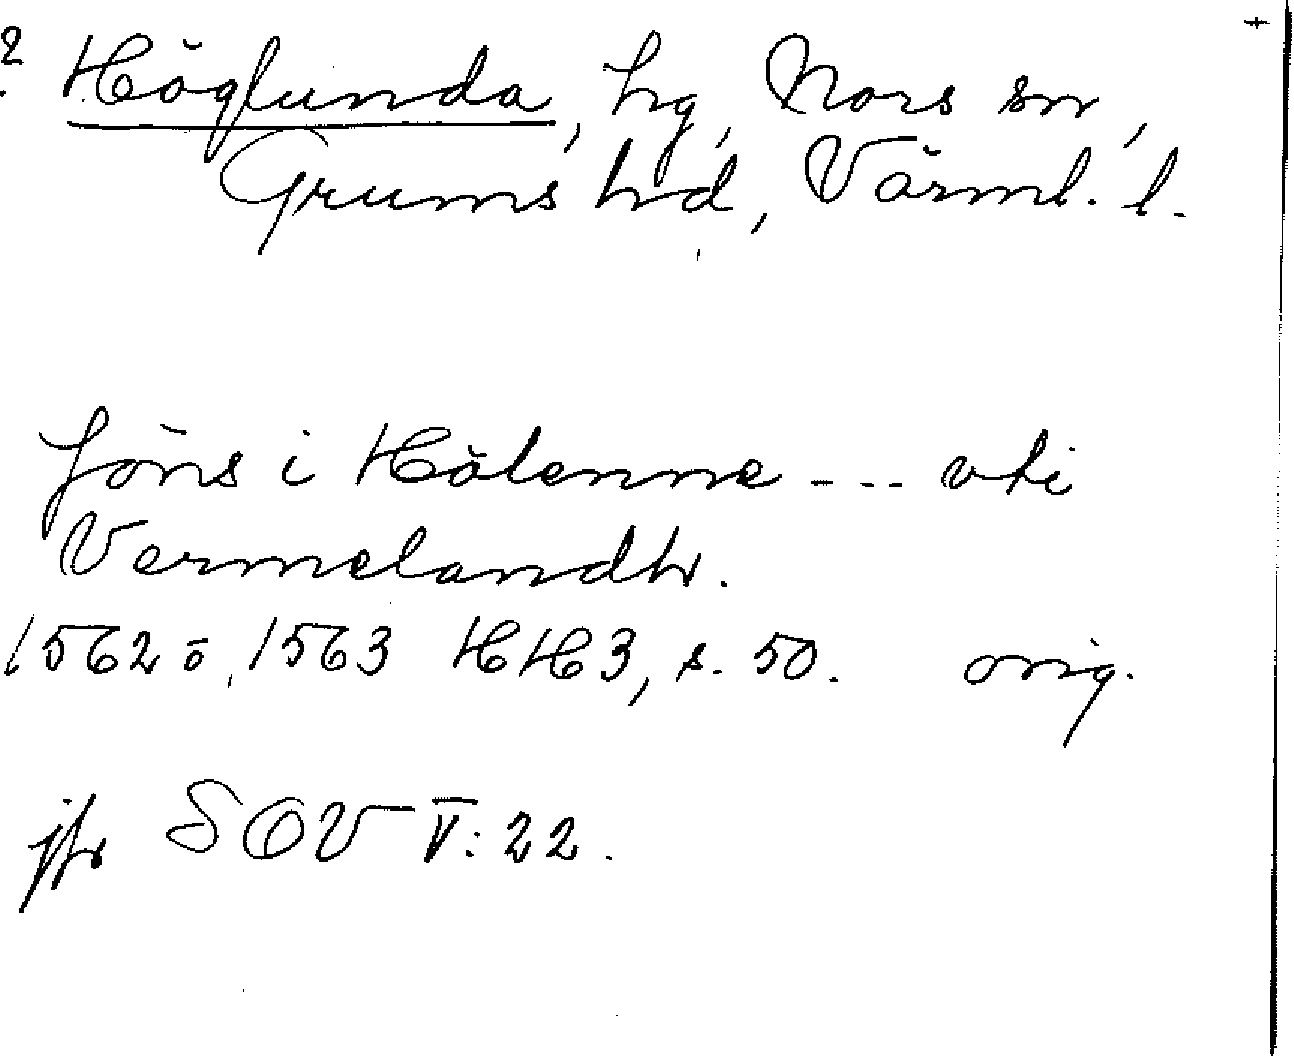 ? Höglunda, hg, Nors sn,
Grums hd, Värml. l.
Jöns i Hölenne - - - vti
Vermelandh.
1562 ö, 1563 HH3, s. 50. orig.
jfr SOV V: 22.